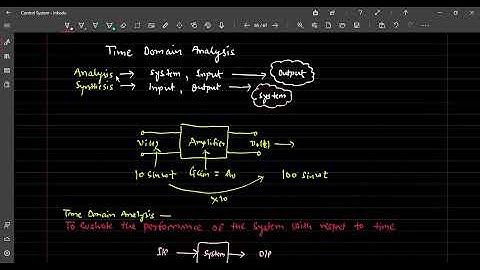 Control System - Inkodo
Time Domain Analysis
Analysis, → System, Input → Output
Synthesis → Input, Output → System
Vi(t) Amplifier Vo(t) →
10 sinωt Gain = Av 100 sinωt
×10
Time Domain Analysis —
To evaluate the performance of the System with respect to time
I/P → System → O/P